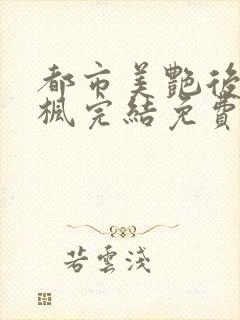 都市美艷後
楓完結免費
若雲淺